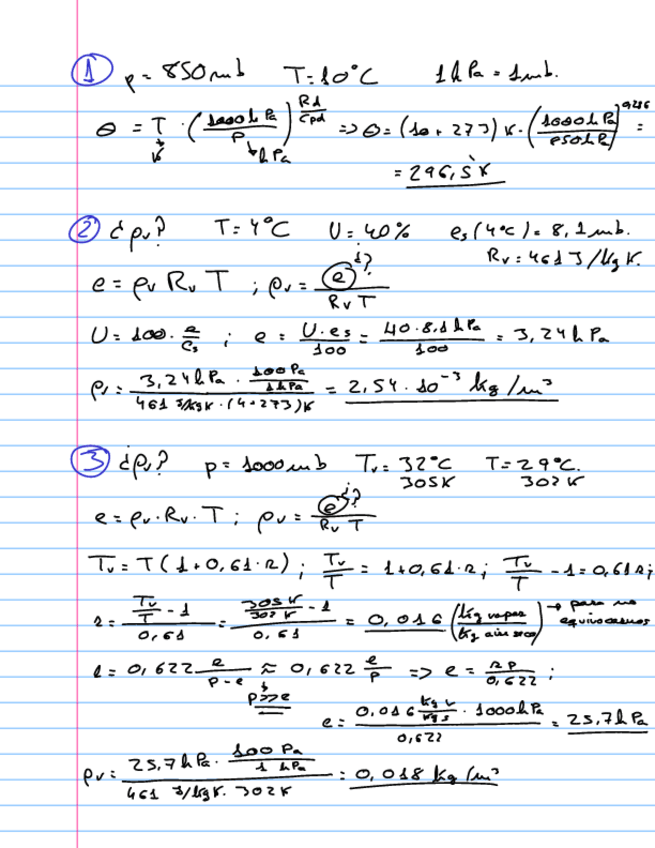 ① p = 850 mb T = 10°C 1 hPa = 1 mb.
θ = T · (1000 hPa / P)^(Rd/Cpd) => θ = (10 + 273) K · (1000 hPa / 850 hPa)^0,286 =
K hPa
= 296,5 K
② ¿ρv? T = 4°C U = 40% es (4°C) = 8,1 mb.
Rv = 461 J/kg K.
e = ρv Rv T ; ρv = e / Rv T ¿?
U = 100 · e / es ; e = U · es / 100 = 40 · 8,1 hPa / 100 = 3,24 hPa
ρv = 3,24 hPa · 100 Pa / 1 hPa / 461 J/kg K · (4 + 273) K = 2,54 · 10⁻³ kg/m³
③ ¿ρv? p = 1000 mb Tv = 32°C T = 29°C.
305 K 302 K
e = ρv · Rv · T ; ρv = e / Rv T ¿?
Tv = T (1 + 0,61 · r) ; Tv / T = 1 + 0,61 · r ; Tv / T - 1 = 0,61 r ;
r = Tv / T - 1 / 0,61 = 305 K / 302 K - 1 / 0,61 = 0,016 (kg vapor / kg aire seco) → para no equivocarnos
r = 0,622 e / p - e ≈ 0,622 e / p => e = r p / 0,622 ;
p >> e
e = 0,016 kg v / kg s · 1000 hPa / 0,622 = 25,7 hPa
ρv = 25,7 hPa · 100 Pa / 1 hPa / 461 J/kg K · 302 K = 0,018 kg/m³